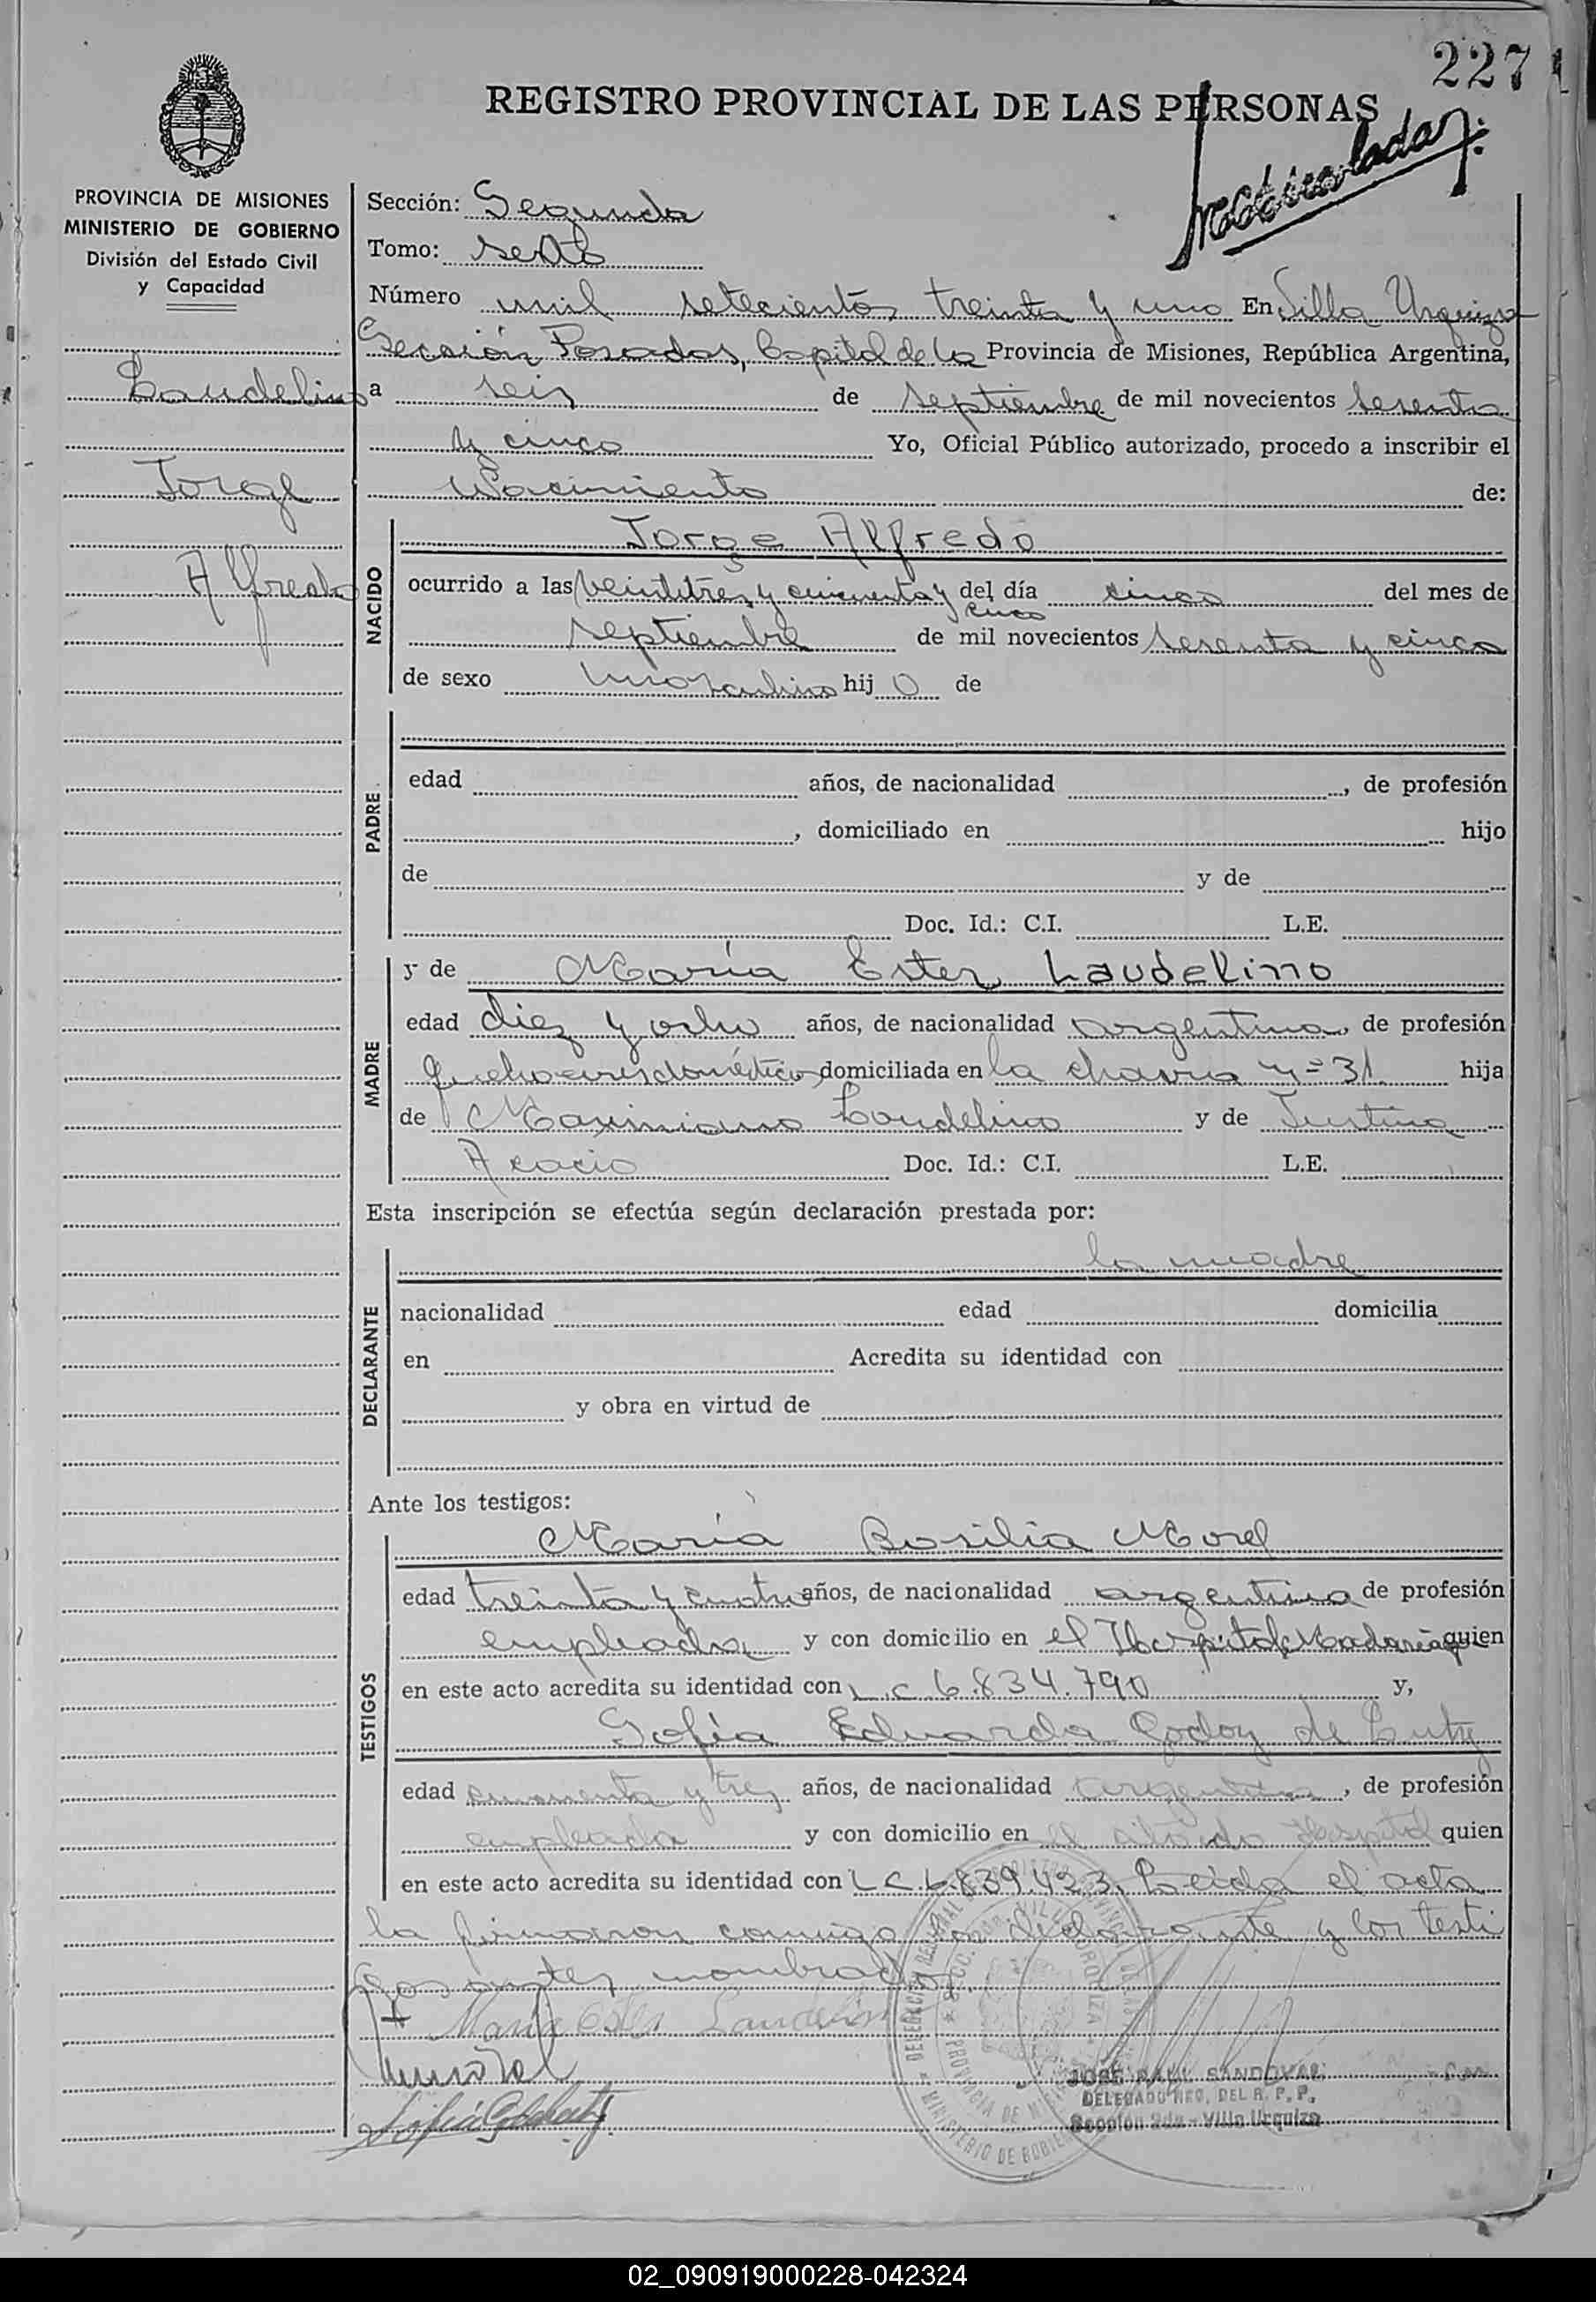 227
REGISTRO PROVINCIAL DE LAS PERSONAS
PROVINCIA DE MISIONES
MINISTERIO DE GOBIERNO
División del Estado Civil
y Capacidad
Sección: Segunda
Tomo: sexto
Número mil setecientos treinta y uno En Villa Urquiza
Sección Posadas, Capital de la Provincia de Misiones, República Argentina,
Laudelino
a seis de septiembre de mil novecientos sesenta
y cinco Yo, Oficial Público autorizado, procedo a inscribir el
Jorge
Nacimiento de:
Alfredo
NACIDO
Jorge Alfredo
ocurrido a las veintitres y cincuenta y cinco del día cinco del mes de
septiembre de mil novecientos sesenta y cinco
de sexo masculino hij o de
PADRE.
edad años, de nacionalidad , de profesión
, domiciliado en hijo
de y de
Doc. Id.: C.I. L.E.
MADRE
y de María Ester Laudelino
edad diez y ocho años, de nacionalidad argentina, de profesión
quehaceres domésticos domiciliada en la chacra nº 31 hija
de Maximiano Laudelino y de Justina
Acacio Doc. Id.: C.I. L.E.
Esta inscripción se efectúa según declaración prestada por:
DECLARANTE
la madre
nacionalidad edad domicilia
en Acredita su identidad con
y obra en virtud de
Ante los testigos:
TESTIGOS
María Basilia Morel
edad treinta y cuatro años, de nacionalidad argentina de profesión
empleada y con domicilio en el Hospital Madariaga quien
en este acto acredita su identidad con L.C. 6.834.790 y,
Sofía Eduarda Godoy de
edad y tres años, de nacionalidad argentina, de profesión
empleada y con domicilio en el citado Hospital quien
en este acto acredita su identidad con L.C. 6.839.423. Leida el acta
la firmaron conmigo la declarante y los testi
gos antes nombrados.
María Ester Laudelino
JOSE RAUL SANDOVAL
DELEGADO REG. DEL R. P. P.
Sección 2da - Villa Urquiza
02_090919000228-042324